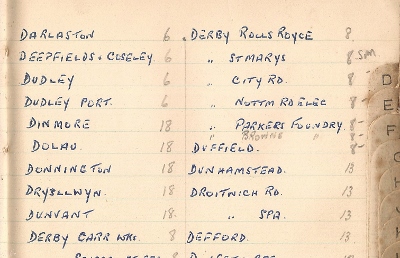 DARLASTON 6
DEEPFIELDS & COSELEY 6
DUDLEY 6
DUDLEY PORT. 6
DINMORE 18
DOLAU 18
DONNINGTON 18
DRYSLLWYN 18
DUNVANT 18
DERBY CARR WKS. 8
DERBY ROLLS ROYCE 8
" ST MARYS 8
" CITY RD. 8
" NOTTM RD ELEC 8
" PARKERS FOUNDRY. 8
" BROWNS " 8
DUFFIELD. 8
DUNHAMSTEAD. 13
DROITWICH RD. 13
" SPA. 13
DEFFORD. 13
D
E
F
G
H